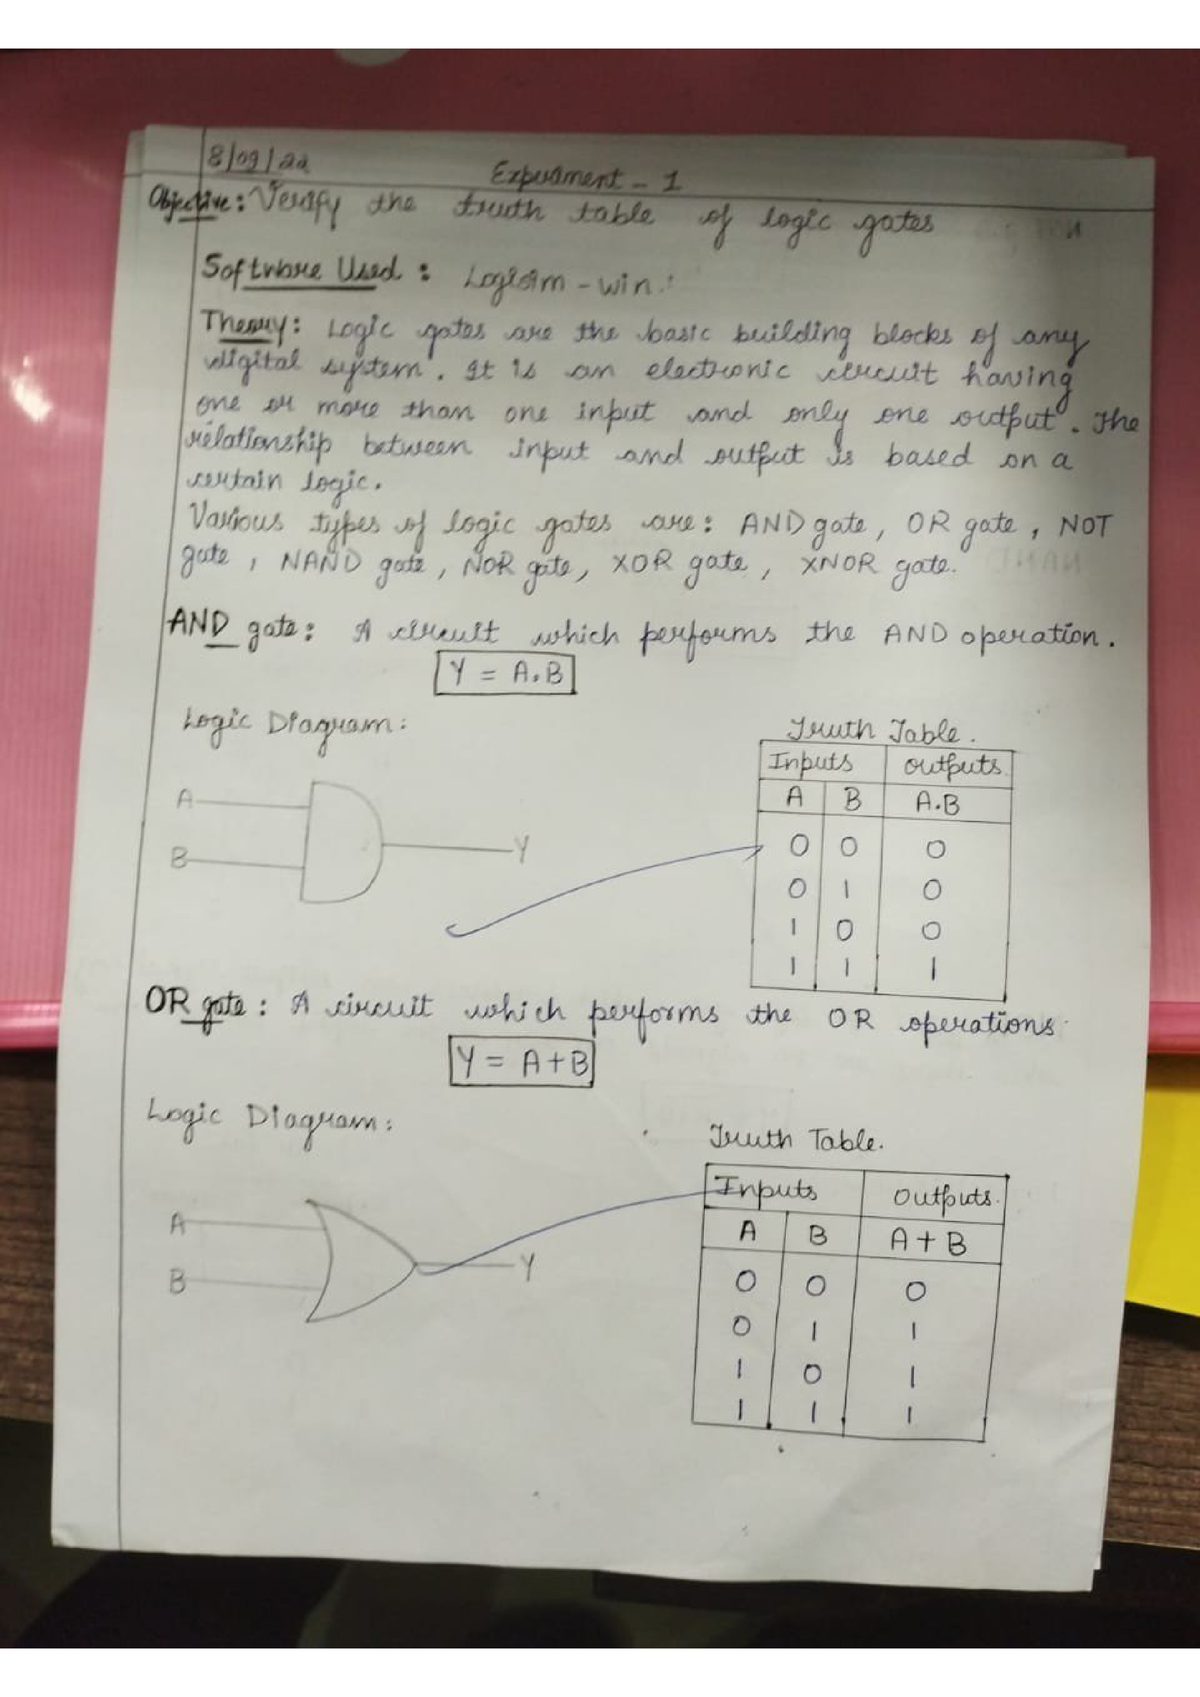 8/09/22
Experiment - 1
Objective: Verify the truth table of logic gates
Software Used : Logisim - win.
Theory: Logic gates are the basic building blocks of any
digital system. It is an electronic circuit having
one or more than one input and only one output. The
relationship between input and output is based on a
certain logic.
Various types of logic gates are: AND gate, OR gate, NOT
gate, NAND gate, NOR gate, XOR gate, XNOR gate.
AND gate: A circuit which performs the AND operation.
Y = A.B
Logic Diagram:
Truth Table.
Inputs outputs
A B A.B
0 0 0
0 1 0
1 0 0
1 1 1
A
B
Y
OR gate : A circuit which performs the OR operations.
Y = A+B
Logic Diagram:
Truth Table.
Inputs outputs.
A B A+B
0 0 0
0 1 1
1 0 1
1 1 1
A
B
Y